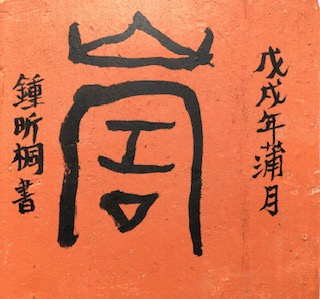 戊戌年蒲月
鍾昕桐書